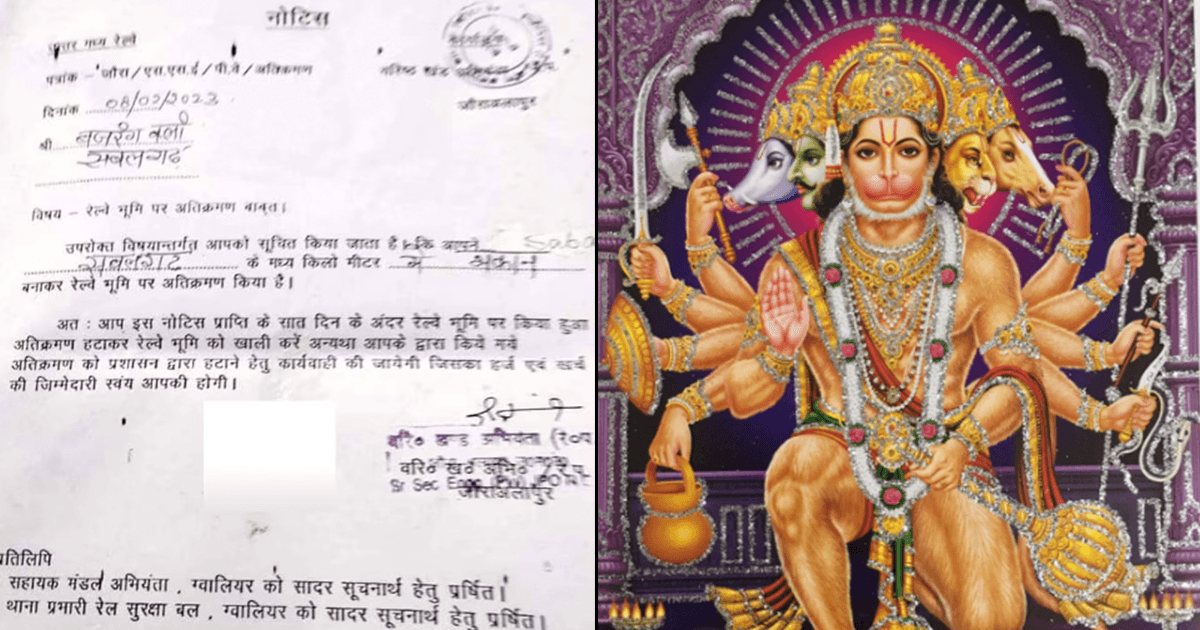 नोटिस
उत्तर मध्य रेल्वे
पत्रांक – जौरा/एस.एस.ई/पी.वे/अतिक्रमण
वरिष्ठ खंड
जौराअलापुर
दिनांक 08/02/2023
श्री बजरंग वली
सबलगढ़
विषय – रेल्वे भूमि पर अतिक्रमण बाबत।
उपरोक्त विषयान्तर्गत आपको सूचित किया जाता है कि आपने Saba
सबलगढ के मध्य किलो मीटर में मकान
बनाकर रेल्वे भूमि पर अतिक्रमण किया है।
अतः आप इस नोटिस प्राप्ति के सात दिन के अंदर रेल्वे भूमि पर किया हुआ
अतिक्रमण हटाकर रेल्वे भूमि को खाली करें अन्यथा आपके द्वारा किये गये
अतिक्रमण को प्रशासन द्वारा हटाने हेतु कार्यवाही की जायेगी जिसका हर्ज एवं खर्च
की जिम्मेदारी स्वंय आपकी होगी।
वरि० खण्ड अभियंता
वरि० खं० अभि०
Sr Sec Engg
जौराअलापुर
प्रतिलिपि
सहायक मंडल अभियंता, ग्वालियर को सादर सूचनार्थ हेतु प्रर्षित।
थाना प्रभारी रेल सुरक्षा बल, ग्वालियर को सादर सूचनार्थ हेतु प्रर्षित।